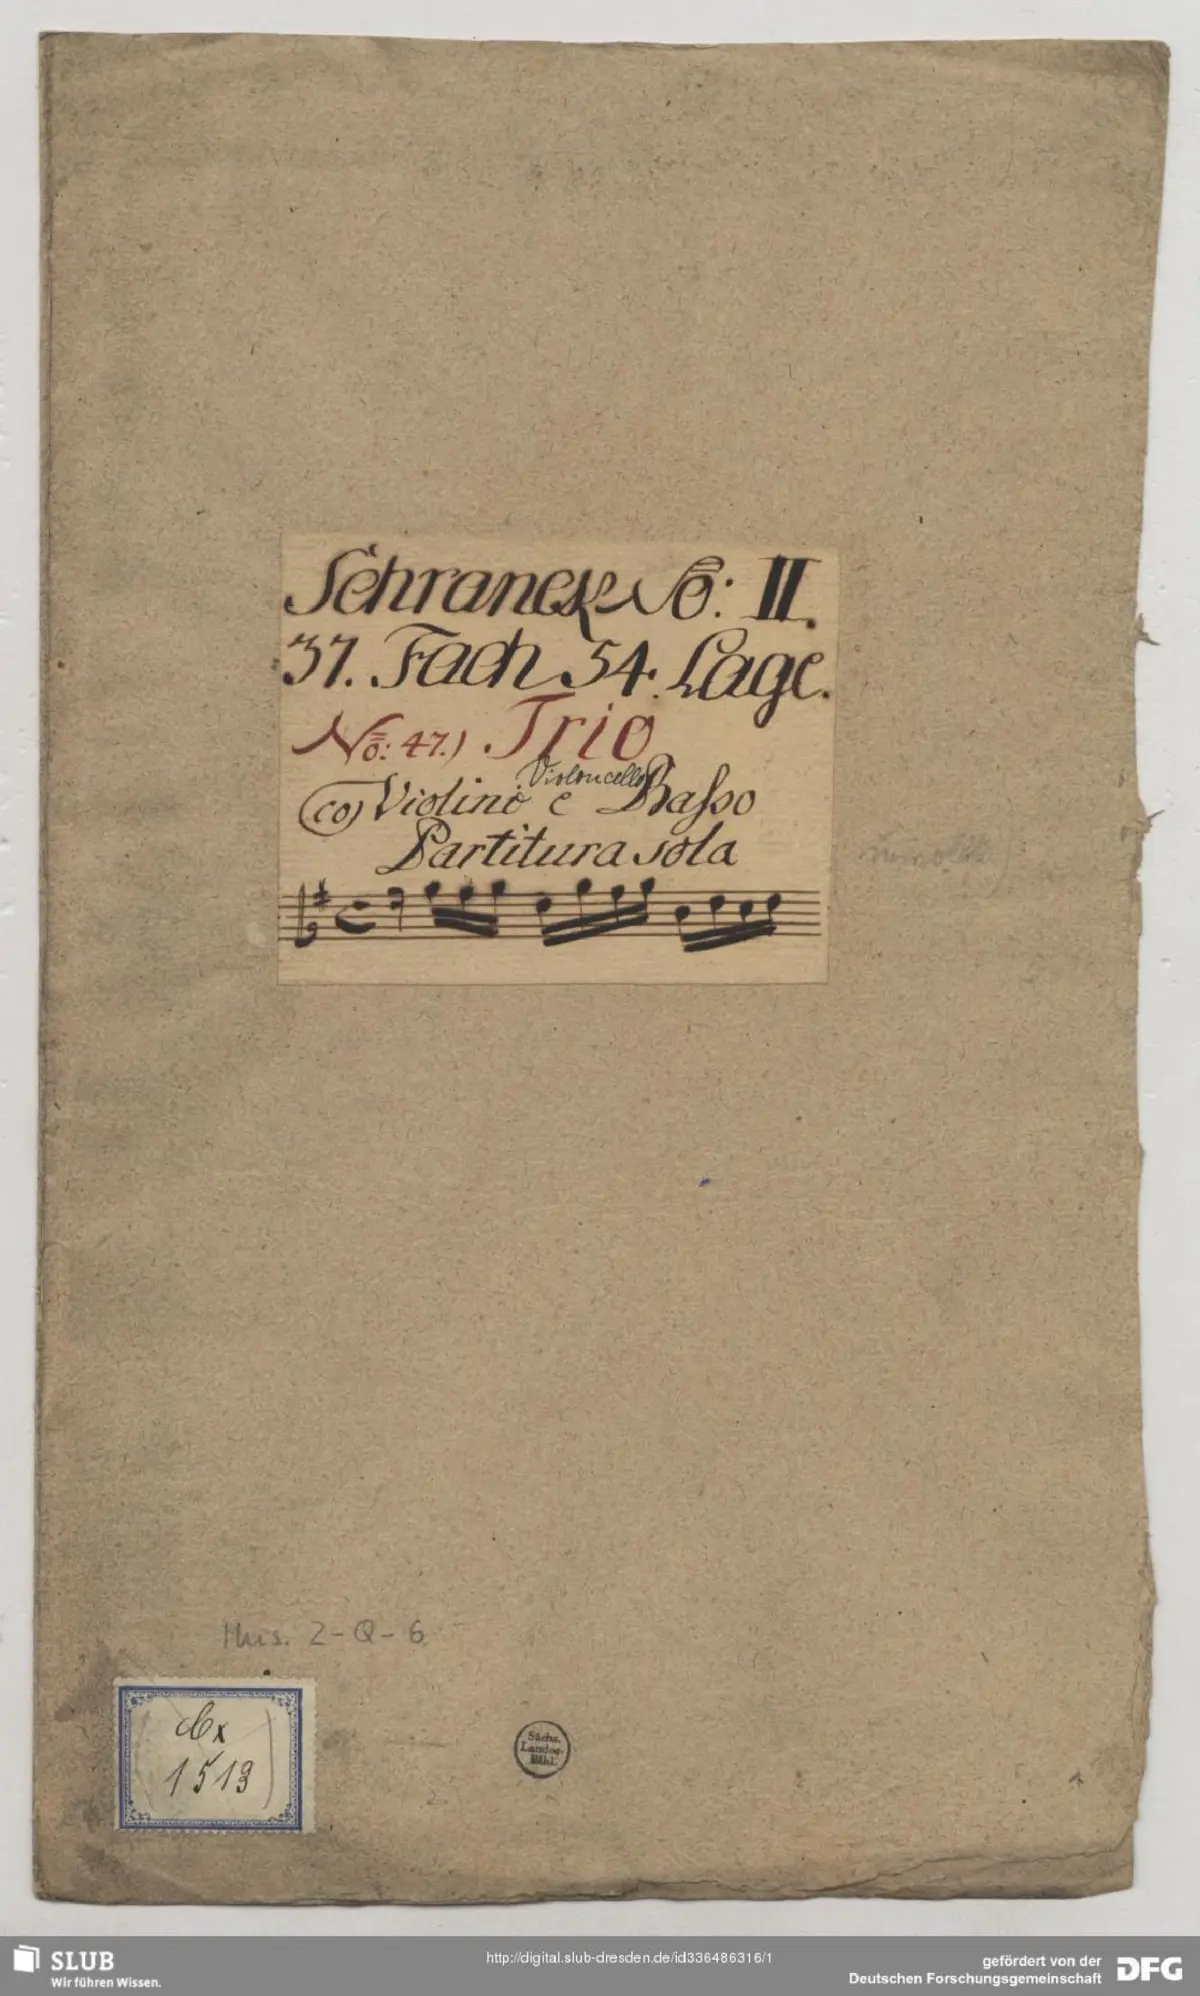 Schranck No: II.
37. Fach 54. Lage.
No: 47.) Trio
Violoncello
co) Violini e Basso
Partitura sola
Mus. 2-Q-6
Cx
1513
Sächs.
Landes-
Bibl.
2.
SLUB
Wir führen Wissen.
http://digital.slub-dresden.de/id336486316/1
gefördert von der
Deutschen Forschungsgemeinschaft
DFG